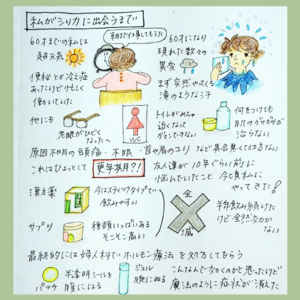 私がシリカに出会うまで
60才までの私は
超元気
便秘とか冷え症
あったけど忙しく
働いていた
60才になり
現れた数々の
異変
まず突然やってくる
滝のような汗
他にも
老眼がひどく
なったへ
WC
トイレがめちゃ
近くなって
がまんできない
何をつけても
肌のガサガサが
治らない
原因不明の頭痛・不眠・首や肩のコリなど具合悪くてたまらない
これはひょっとして
更年期?!
友人達が10年ぐらい前に
悩んでいたこと今じ真私に
やってきた!
漢方薬
今はスティックタイプで
飲みやすい
サプリ
種類いっぱいある
そこそこ高い
全滅
半年飲み続けた
けど全然効か
ない
最終的には婦人科でホルモン療法を処方してもらう
半透明シールを
腹にはる
パッチ
ジェル
腹にぬる
こんなんで効くのかと思ったけど
魔法のように症状が消えた